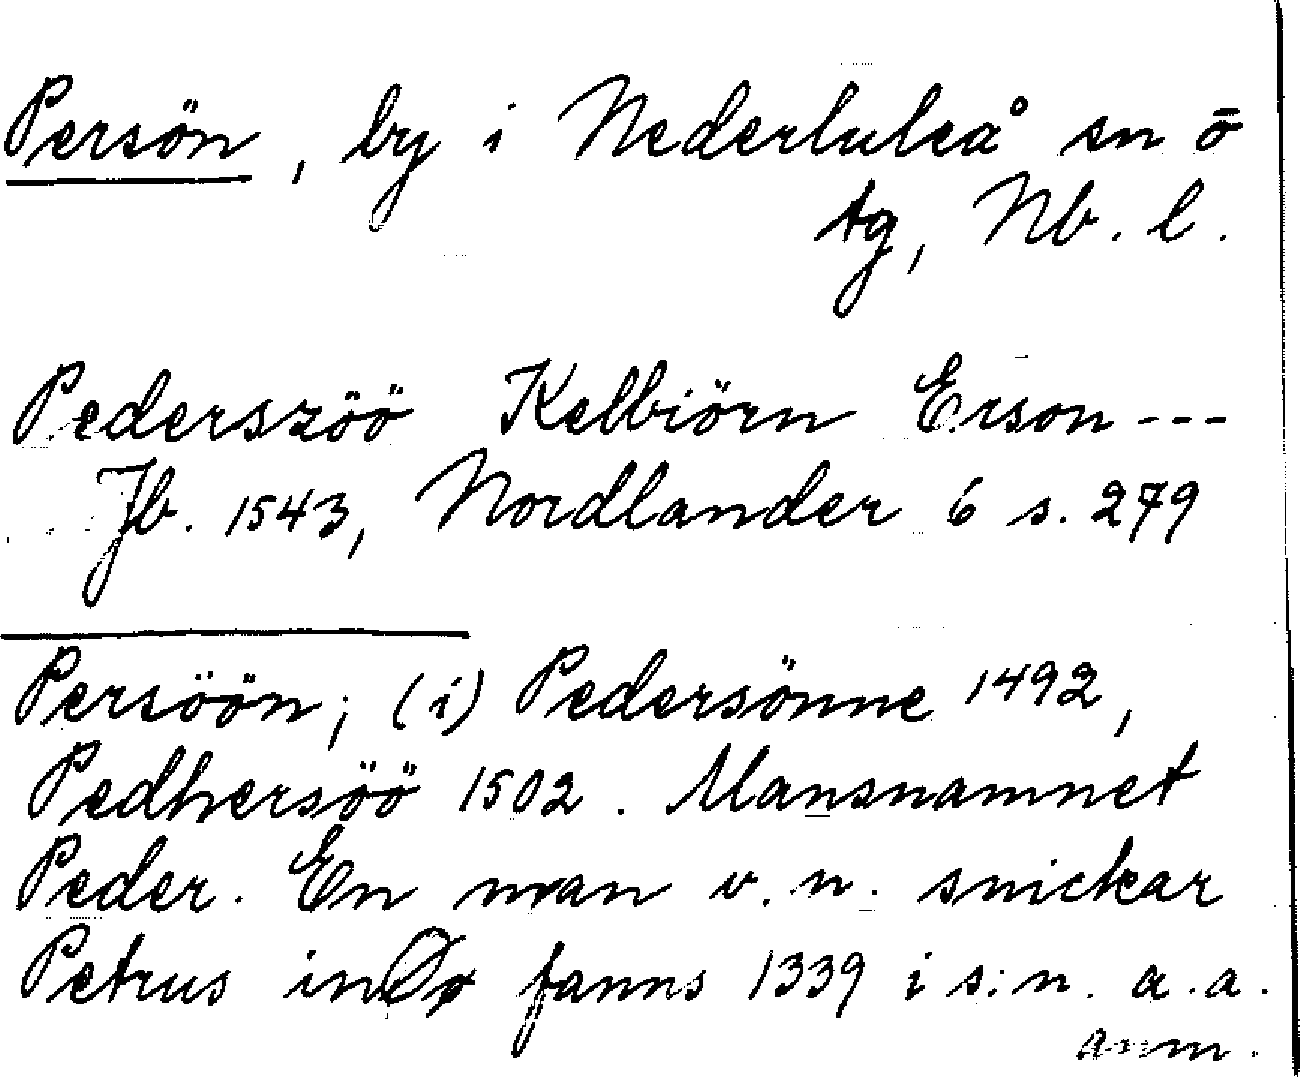 Persön, by i Nederluleå sn ō
tg, Nb. l.
Pederszöö Kelbiörn Erson ---
Jb. 1543, Nordlander 6 s. 279
Persöön; (i) Pedersönne 1492,
Pedhersöö 1502. Mansnamnet
Peder. En man v. n. snickar
Petrus in fanns 1339 i s:n. a.a.
anm.